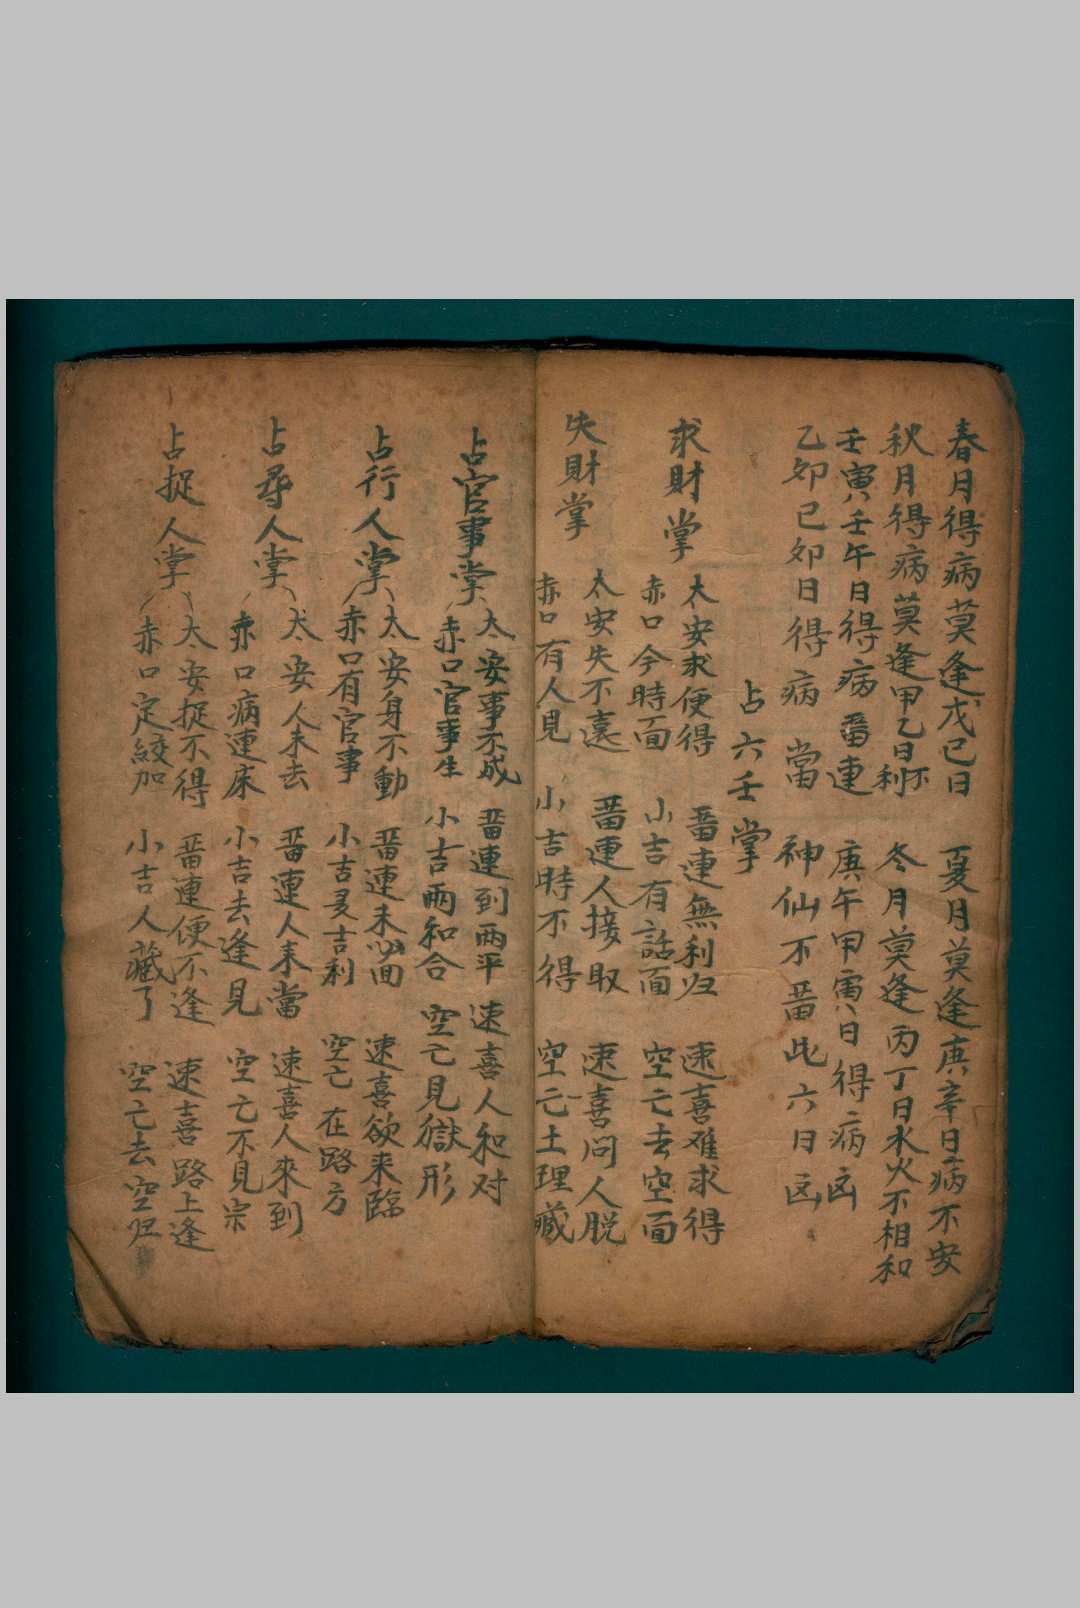 春月得病莫逢戊己日 夏月莫逢庚辛日病不安
秋月得病莫逢甲乙日不利 冬月莫逢丙丁日水火不相和
壬寅壬午日得病畱連 庚午甲寅日得病凶
乙卯己卯日得病當 神仙不畱此六日凶
占六壬掌
求財掌
太安求便得 畱連無利归 速喜难求得
赤口今時面 小吉有話面 空亡去空面
失財掌
太安失不遠 畱連人接取 速喜问人脱
赤口有人見 小吉時不得 空亡土理藏
占官事掌
太安事不成 畱連到两平 速喜人和对
赤口官事生 小吉兩和合 空亡見獄形
占行人掌
太安身不動 畱連未必回 速喜欲来臨
赤口有官事 小吉多吉利 空亡在路方
占尋人掌
太安人未去 畱連人来當 速喜人來到
赤口病連床 小吉去逢見 空亡不見宗
占捉人掌
太安捉不得 畱連便不逢 速喜路上逢
赤口定絞加 小吉人藏了 空亡去空归